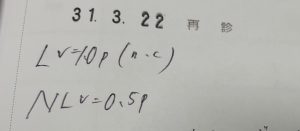 31. 3. 22 再診
LV=1.0p (n.c)
NLV=0.5p